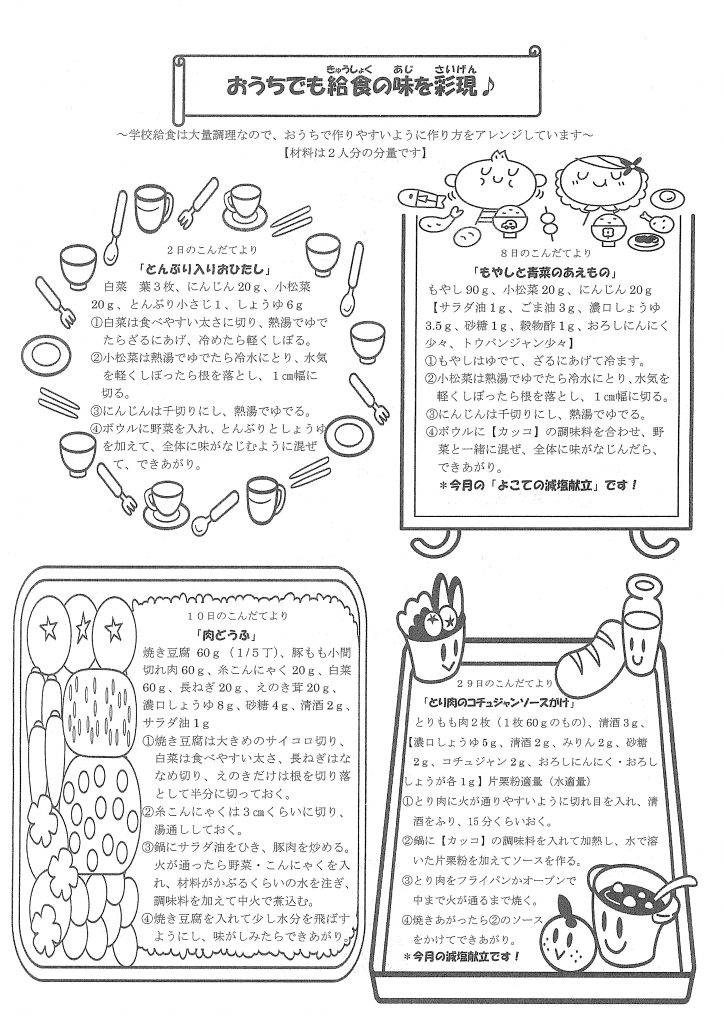 おうちでも給食の味を彩現♪
きゅうしょく　あじ　さいげん
～学校給食は大量調理なので、おうちで作りやすいように作り方をアレンジしています～
【材料は２人分の分量です】
２日のこんだてより
「とんぶり入りおひたし」
白菜　葉３枚、にんじん20ｇ、小松菜
20ｇ、とんぶり小さじ１、しょうゆ６ｇ
①白菜は食べやすい太さに切り、熱湯でゆで
たらざるにあげ、冷めたら軽くしぼる。
②小松菜は熱湯でゆでたら冷水にとり、水気
を軽くしぼったら根を落とし、１㎝幅に
切る。
③にんじんは千切りにし、熱湯でゆでる。
④ボウルに野菜を入れ、とんぶりとしょうゆ
を加えて、全体に味がなじむように混ぜ
て、できあがり。
８日のこんだてより
「もやしと青菜のあえもの」
もやし90ｇ、小松菜20ｇ、にんじん20ｇ
【サラダ油１ｇ、ごま油３ｇ、濃口しょうゆ
3.5ｇ、砂糖１ｇ、穀物酢１ｇ、おろしにんにく
少々、トウバンジャン少々】
①もやしはゆでて、ざるにあげて冷ます。
②小松菜は熱湯でゆでたら冷水にとり、水気を
軽くしぼったら根を落とし、１㎝幅に切る。
③にんじんは千切りにし、熱湯でゆでる。
④ボウルに【カッコ】の調味料を合わせ、野
菜と一緒に混ぜ、全体に味がなじんだら、
できあがり。
＊今月の「よこての減塩献立」です！
１０日のこんだてより
「肉どうふ」
焼き豆腐 60ｇ（１/５丁）、豚もも小間
切れ肉60ｇ、糸こんにゃく20ｇ、白菜
60ｇ、長ねぎ20ｇ、えのき茸20ｇ、
濃口しょうゆ８ｇ、砂糖４ｇ、清酒２ｇ、
サラダ油１ｇ
①焼き豆腐は大きめのサイコロ切り、
白菜は食べやすい太さ、長ねぎはな
なめ切り、えのきだけは根を切り落
として半分に切っておく。
②糸こんにゃくは３㎝くらいに切り、
湯通ししておく。
③鍋にサラダ油をひき、豚肉を炒める。
火が通ったら野菜・こんにゃくを入
れ、材料がかぶるくらいの水を注ぎ、
調味料を加えて中火で煮込む。
④焼き豆腐を入れて少し水分を飛ばす
ようにし、味がしみたらできあがり。
２９日のこんだてより
「とり肉のコチュジャンソースがけ」
とりもも肉２枚（１枚60ｇのもの）、清酒３ｇ、
【濃口しょうゆ５ｇ、清酒２ｇ、みりん２ｇ、砂糖
２ｇ、コチュジャン２ｇ、おろしにんにく・おろし
しょうが各１ｇ】片栗粉適量（水適量）
①とり肉に火が通りやすいように切れ目を入れ、清
酒をふり、15分くらいおく。
②鍋に【カッコ】の調味料を入れて加熱し、水で溶
いた片栗粉を加えてソースを作る。
③とり肉をフライパンかオーブンで
中まで火が通るまで焼く。
④焼きあがったら②のソース
をかけてできあがり。
＊今月の減塩献立です！